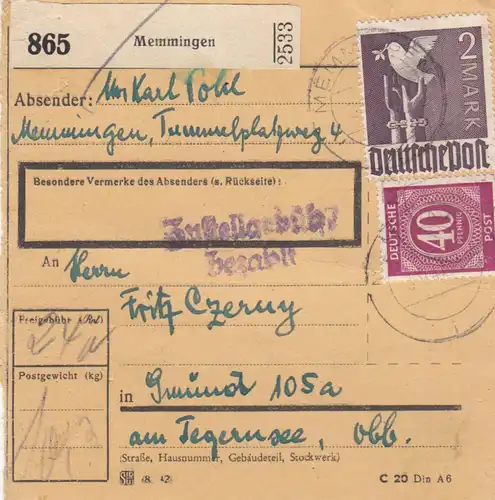 865 Memmingen 2533
Absender: Karl Pohl
Memmingen, Tummelplatzweg 4.
MEMM
2 MARK
Deutsche Post
Besondere Vermerke des Absenders (s. Rückseite):
Zustellgebühr
bezahlt
DEUTSCHE POST
40 PFENNIG
An Herrn
Fritz Czerny
Freigebühr
Postgewicht (kg)
in Gmünd 105a
am Tegernsee, Obb.
(Straße, Hausnummer, Gebäudeteil, Stockwerk)
C 20 Din A6